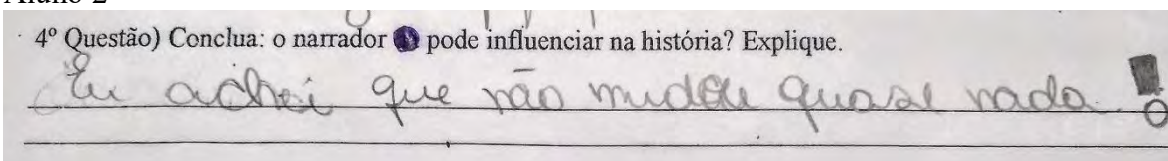 4º Questão) Conclua: o narrador pode influenciar na história? Explique.
Eu achei que não mudou quase nada!